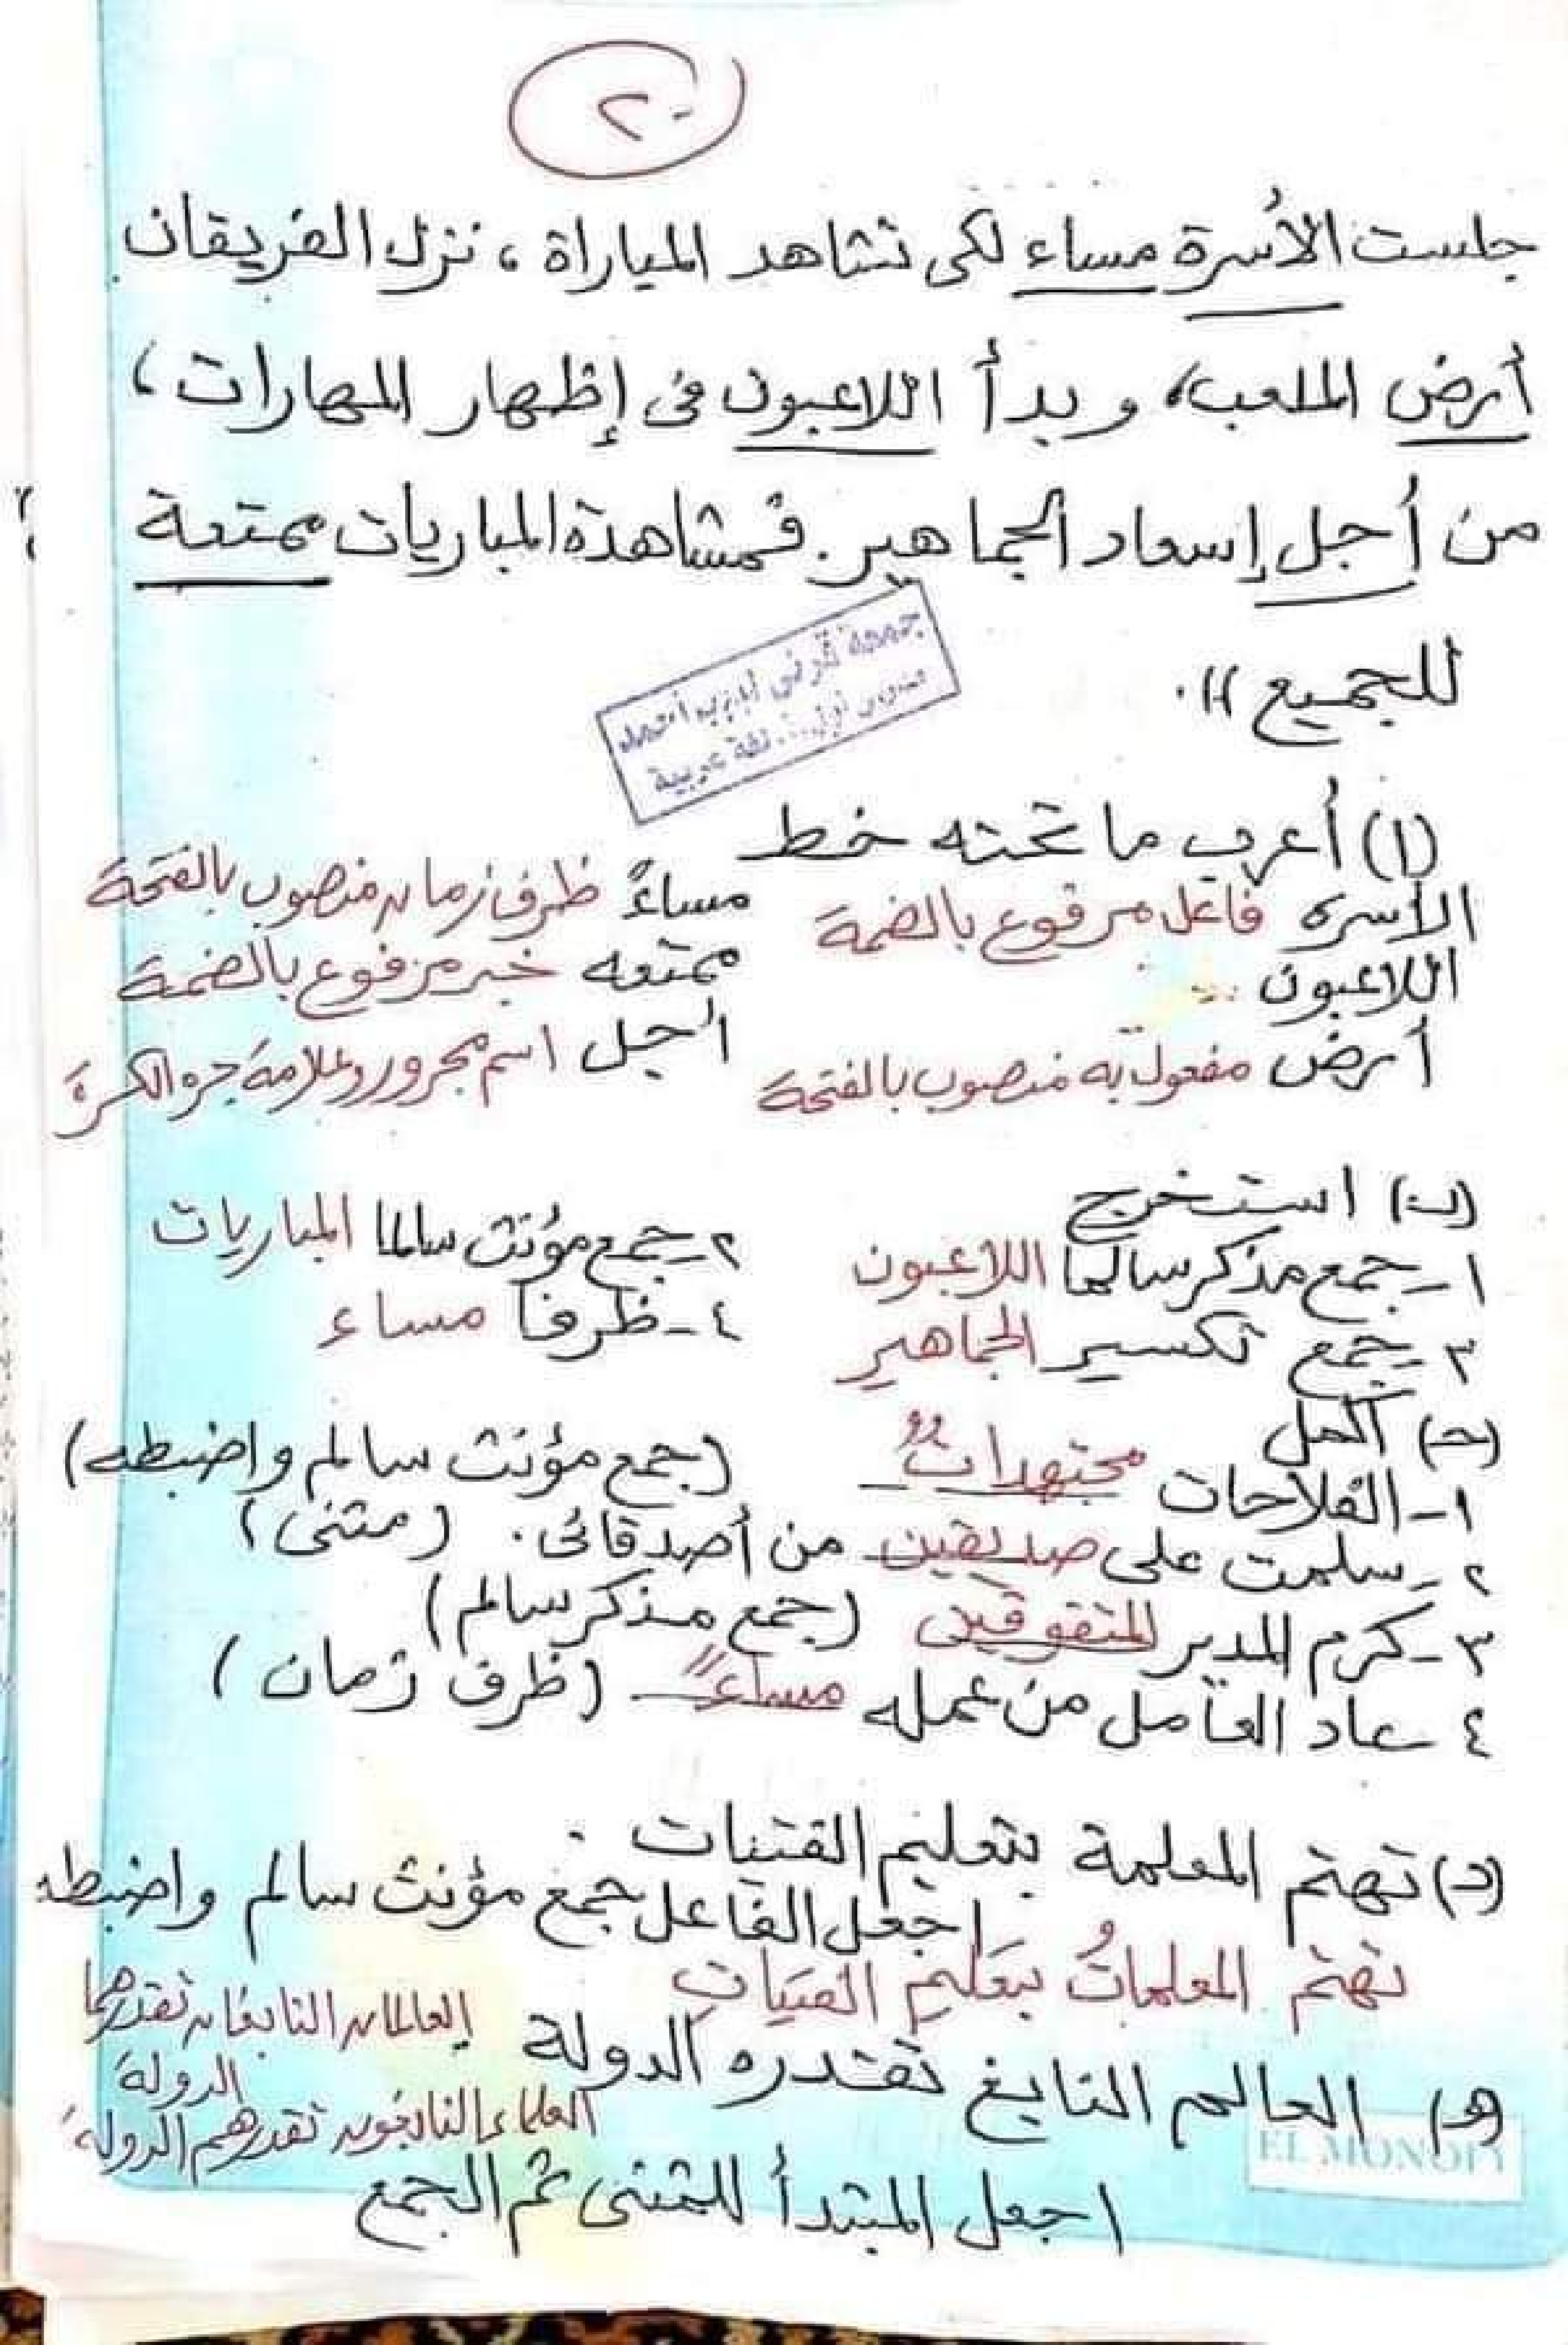 ٢٠
جلست الأسرة مساء لكى تشاهد المباراة ، نزل الفريقان
أرض الملعب، وبدأ اللاعبون فى إظهار المهارات ،
من أجل إسعاد الجماهير. فمشاهدة المباريات ممتعة
للجميع )).
(١) أعرب ما تحته خط
الأسره فاعل مرفوع بالضمة مساءً ظرف زمان منصوب بالفتحة
اللاعبون ممتعه خبر مرفوع بالضمة
أرض مفعول به منصوب بالفتحة أجل اسم مجرور وعلامة جره الكسرة
(ب) استخرج
١- جمع مذكر سالما اللاعبون ٢- جمع مؤنث سالما المباريات
٣- جمع تكسير الجماهير ٤- ظرفا مساء
(حـ) أكمل
١- الفلاحات مجتهداتٌ (جمع مؤنث سالم واضبطه)
٢- سلمت على صديقين من أصدقائى. (مثنى)
٣- كرم المدير المتفوقين (جمع مذكر سالم)
٤- عاد العامل من عمله مساءً (ظرف زمان)
(د) تهتم المعلمة بتعليم الفتيات .
اجعل الفاعل جمع مؤنث سالم واضبطه
تهتم المعلماتُ بتعليم الفتياتِ
(هـ) العالم النابغ تقدره الدولة
العالمان النابغان تقدرهما الدولة
العلماء النابغون تقدرهم الدولة
اجعل المبتدأ للمثنى ثم الجمع
EL MONOFY